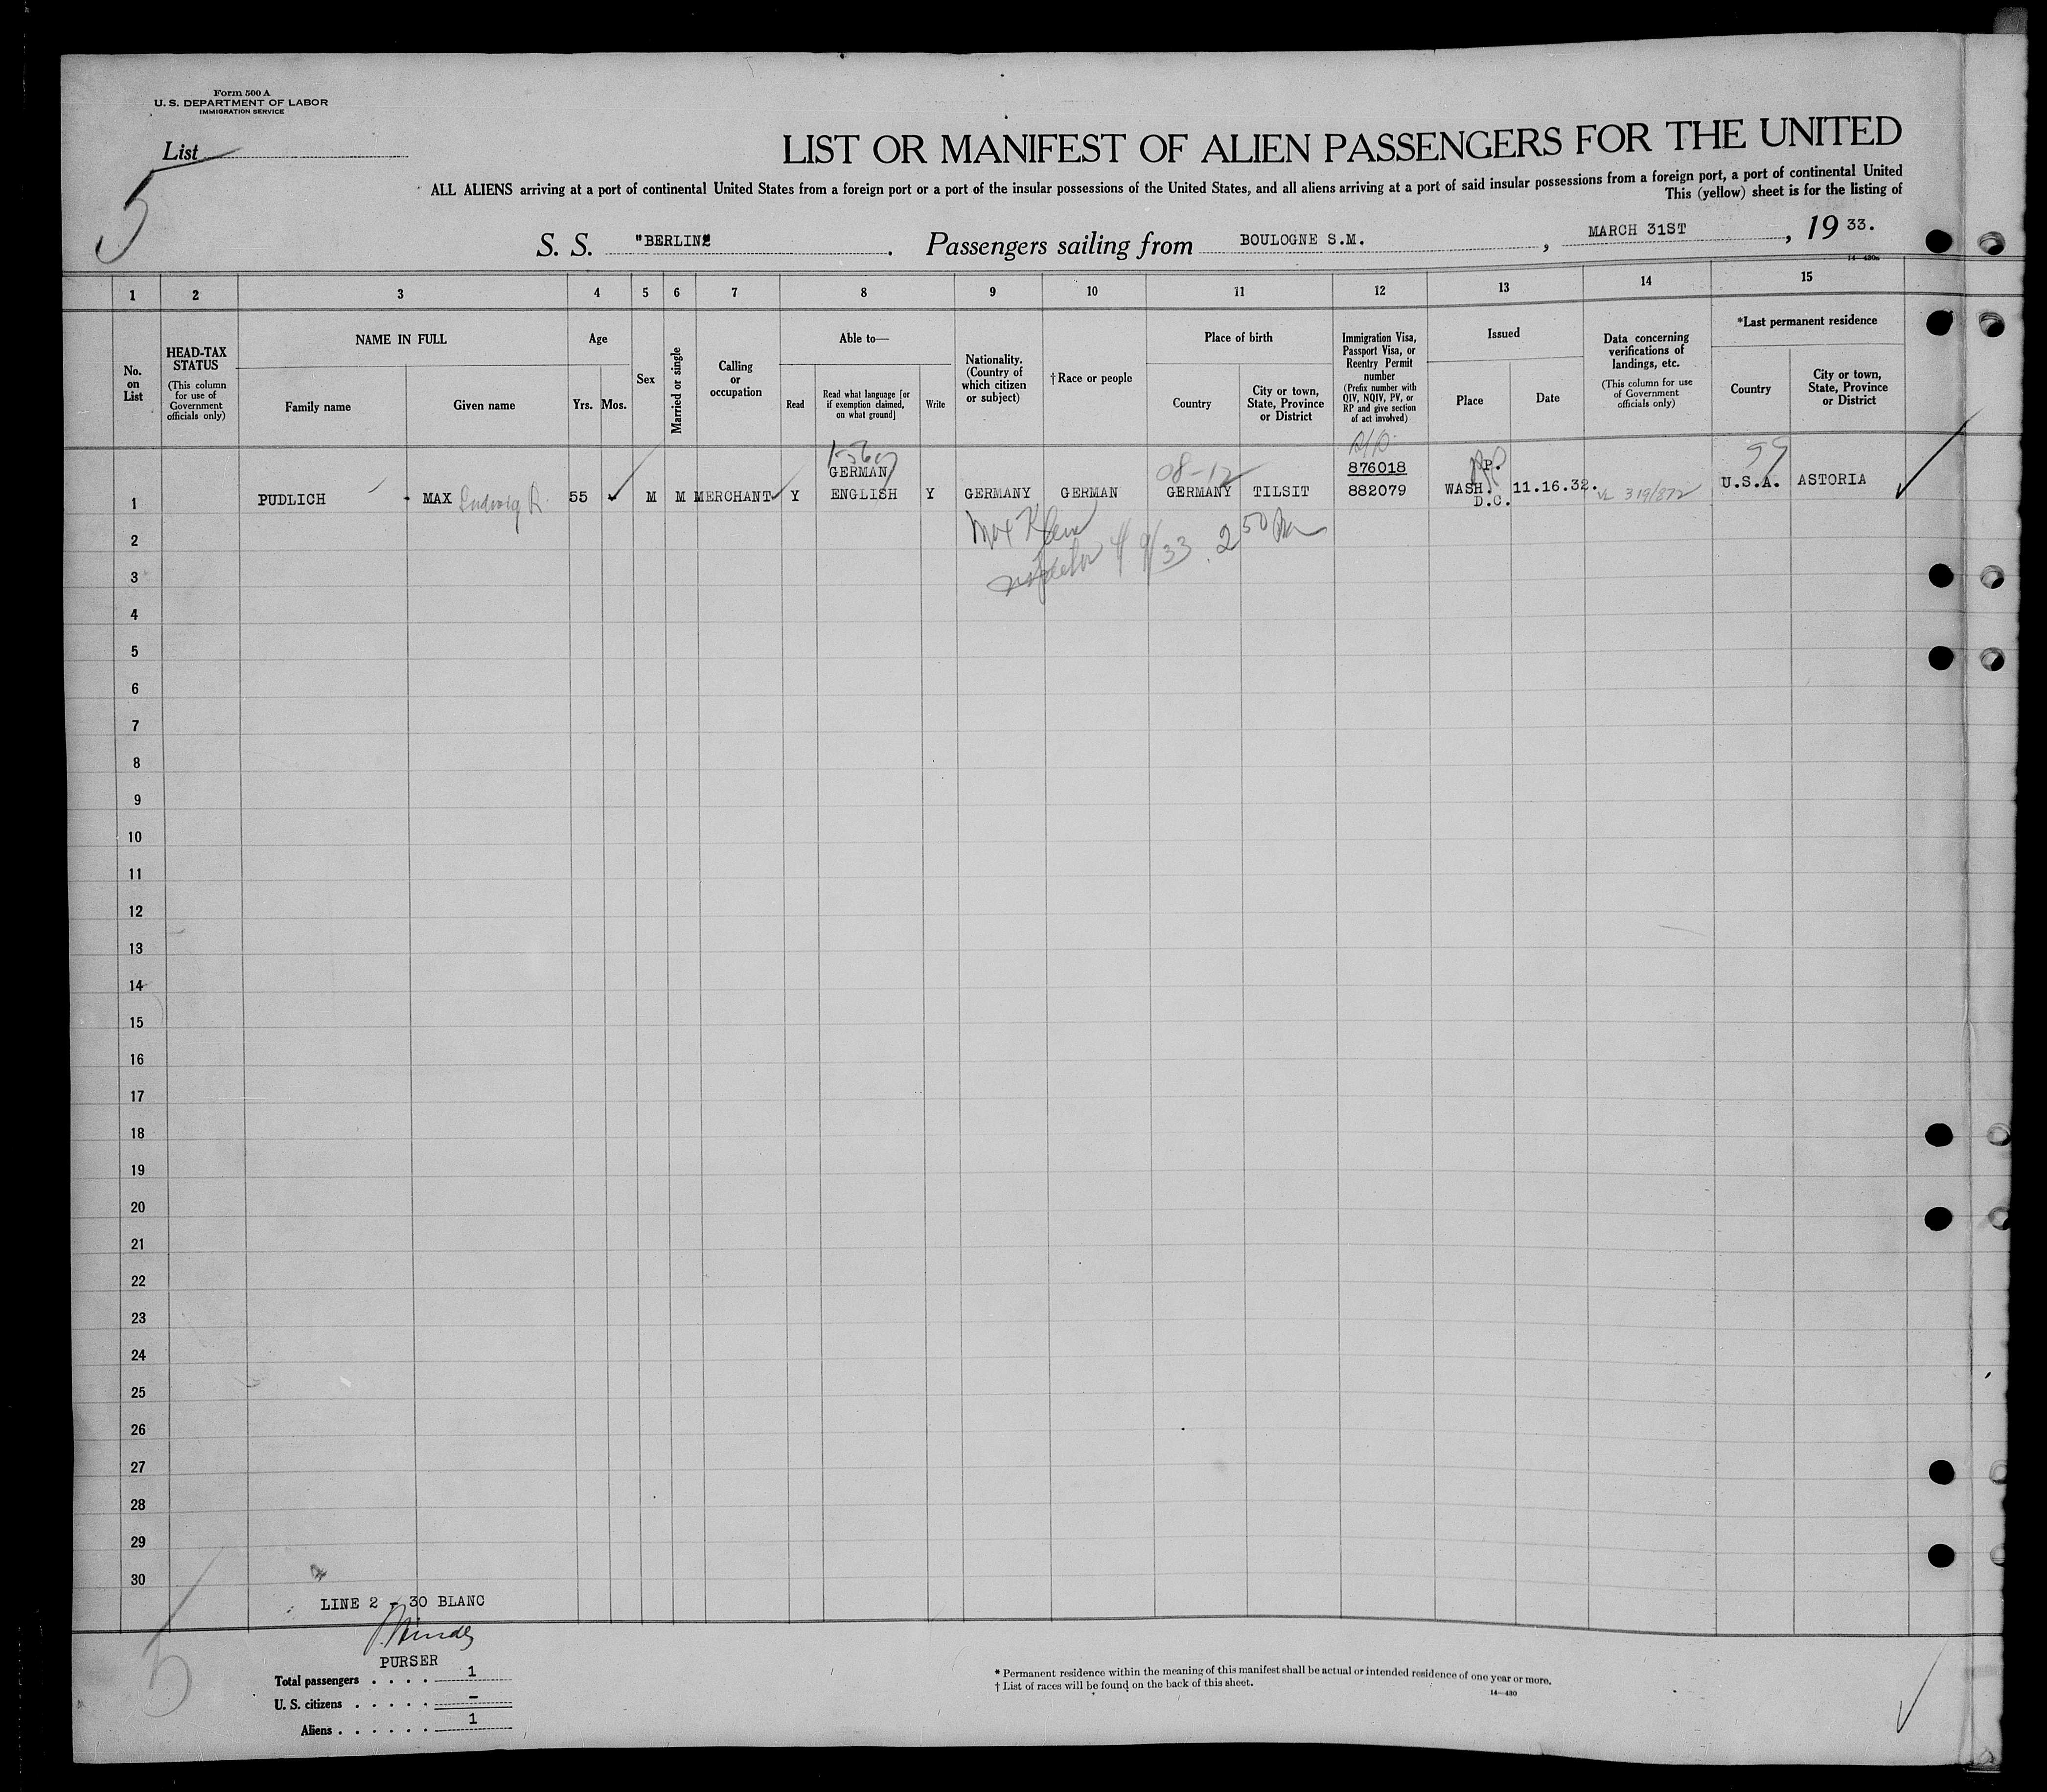 Form 500 A
U. S. DEPARTMENT OF LABOR
IMMIGRATION SERVICE
List
5
LIST OR MANIFEST OF ALIEN PASSENGERS FOR THE UNITED
ALL ALIENS arriving at a port of continental United States from a foreign port or a port of the insular possessions of the United States, and all aliens arriving at a port of said insular possessions from a foreign port, a port of continental United
This (yellow) sheet is for the listing of
S. S. "BERLIN" . Passengers sailing from BOULOGNE S.M. , MARCH 31ST , 19 33.
14—430a
1 2 3 4 5 6 7 8 9 10 11 12 13 14 15
No. on List
HEAD-TAX STATUS
(This column for use of Government officials only)
NAME IN FULL
Family name
Given name
Age
Yrs.
Mos.
Sex
Married or single
Calling or occupation
Able to—
Read
Read what language [or if exemption claimed, on what ground]
Write
Nationality. (Country of which citizen or subject)
†Race or people
Place of birth
Country
City or town, State, Province or District
Immigration Visa, Passport Visa, or Reentry Permit number
(Prefix number with QIV, NQIV, PV, or RP and give section of act involved)
Issued
Place
Date
Data concerning verifications of landings, etc.
(This column for use of Government officials only)
*Last permanent residence
Country
City or town, State, Province or District
1 PUDLICH MAX Ludwig R. 55 M M MERCHANT Y GERMAN ENGLISH Y GERMANY GERMAN 08-12 GERMANY TILSIT 876018 882079 R.P. WASH. D.C. 11.16.32. VL 319/872 99 U.S.A. ASTORIA
Max Klein
Inspector 4/9/33 2 50 PM
2
3
4
5
6
7
8
9
10
11
12
13
14
15
16
17
18
19
20
21
22
23
24
25
26
27
28
29
30
LINE 2 - 30 BLANC
PURSER
Total passengers . . . . 1
U. S. citizens . . . . . –
Aliens . . . . . . 1
5
* Permanent residence within the meaning of this manifest shall be actual or intended residence of one year or more.
† List of races will be found on the back of this sheet.
14—430